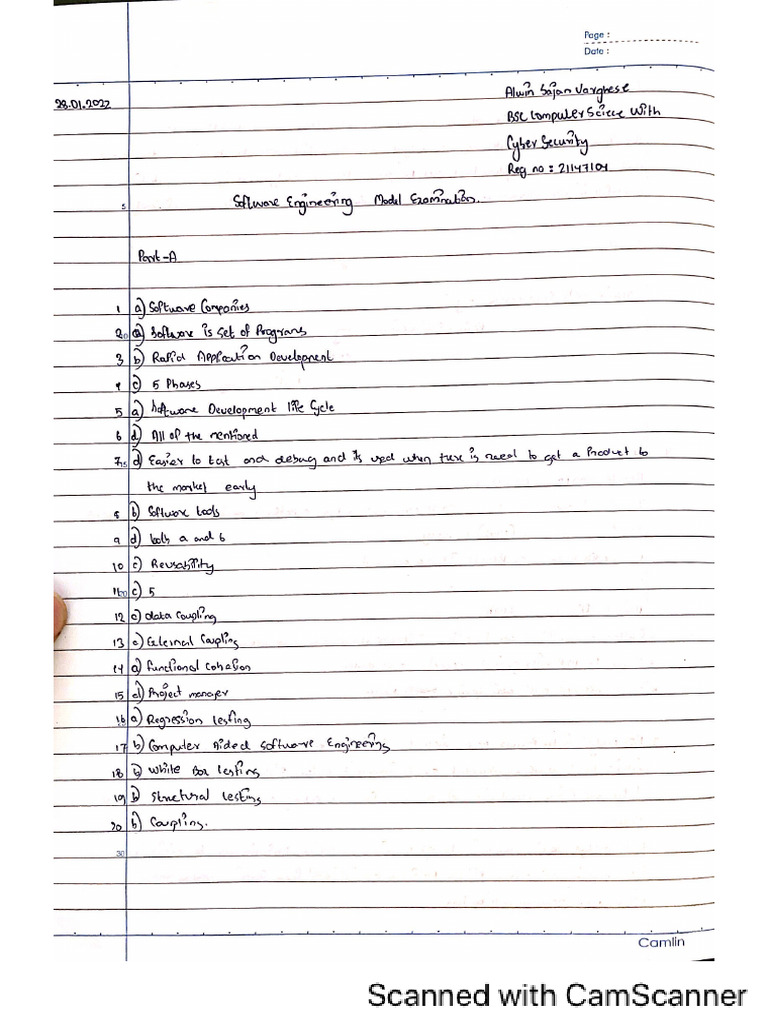 Page :
Date :
28.01.2022
Alwin Sajan Varghese
BSC Computer Sciece With
Cyber Security
Reg no : 21147104
5
Software Engineering Model Examination.
Part-A
1 a) Software Companies
2 a) Software is set of Programs
3 b) Rapid Application Development
4 c) 5 Phases
5 a) Software Development life Cycle
6 d) All of the mentioned
7 d) Easier to test and debug and its used when there is need to get a Product to
the market early
8 b) Software tools
9 d) both a and b
10 c) Reusability
11 c) 5
12 c) data Coupling
13 c) External Coupling
14 a) functional cohesion
15 d) Project manager
16 a) Regression testing
17 b) Computer Aided Software Engineering
18 b) White Box testing
19 b) Structural testing
20 b) Coupling.
30
Camlin
Scanned with CamScanner